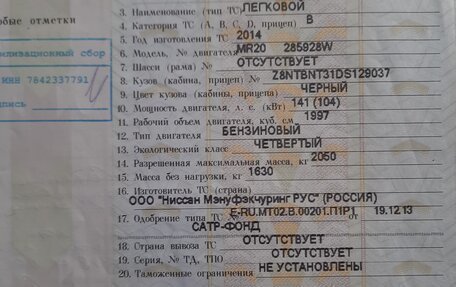 обые отметки
илизационный сбор
ИНН 7842337791
дпись
3. Наименование (тип ТС) ЛЕГКОВОЙ
4. Категория ТС (А, В, С, D, прицеп) B
5. Год изготовления ТС 2014
6. Модель, № двигателя MR20 285928W
7. Шасси (рама) № ОТСУТСТВУЕТ
8. Кузов (кабина, прицеп) № Z8NTBNT31DS129037
9. Цвет кузова (кабины, прицепа) ЧЕРНЫЙ
10. Мощность двигателя, л. с. (кВт) 141 (104)
11. Рабочий объем двигателя, куб. см 1997
12. Тип двигателя БЕНЗИНОВЫЙ
13. Экологический класс ЧЕТВЕРТЫЙ
14. Разрешенная максимальная масса, кг 2050
15. Масса без нагрузки, кг 1630
16. Изготовитель ТС (страна)
ООО "Ниссан Мэнуфэкчуринг РУС" (РОССИЯ)
17. Одобрение типа ТС № E-RU.MT02.B.00201.П1Р1 от 19.12.13
САТР-ФОНД
18. Страна вывоза ТС ОТСУТСТВУЕТ
19. Серия, № ТД, ТПО ОТСУТСТВУЕТ
20. Таможенные ограничения НЕ УСТАНОВЛЕНЫ